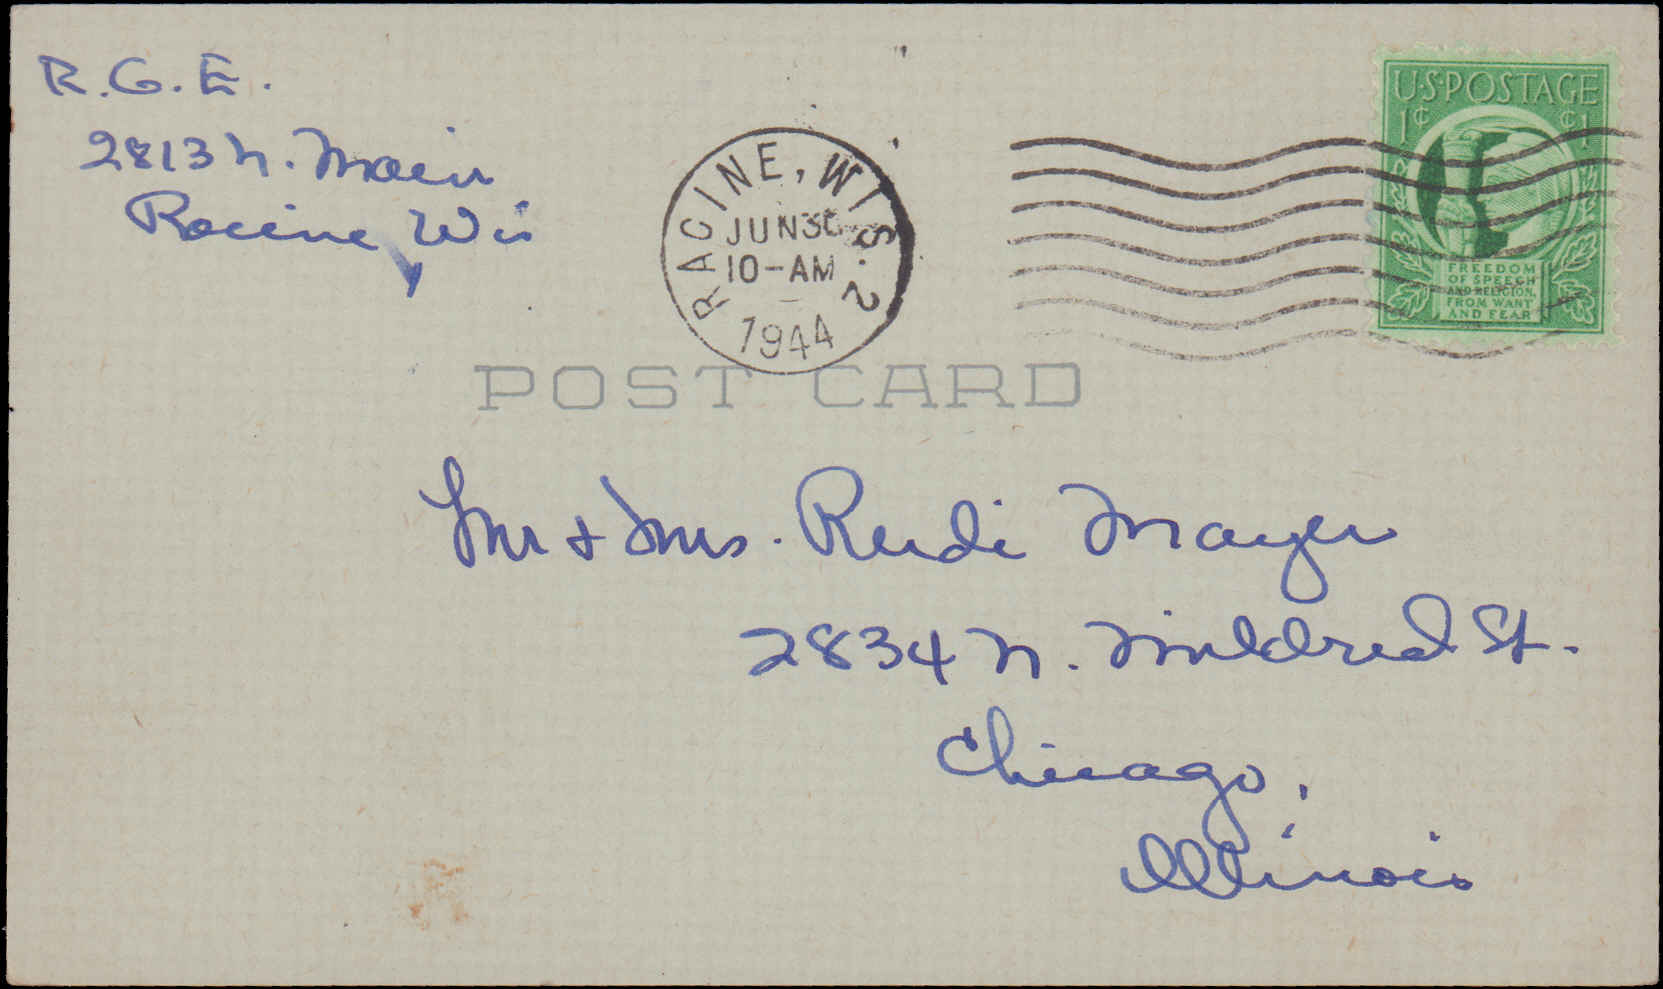 R.G.E.
2813 N. Main
Racine Wis
RACINE, WIS. 2
JUN 30
10-AM
1944
U.S. POSTAGE
1¢ ¢1
FREEDOM
OF SPEECH
AND RELIGION,
FROM WANT
AND FEAR
POST CARD
Mr & Mrs. Rudi Mayer
2834 N. Mildred St.
Chicago,
Illinois